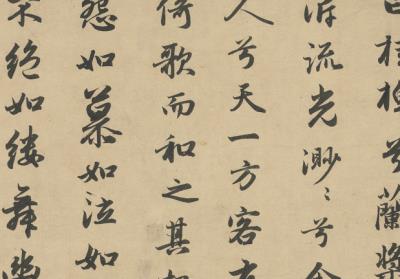 曰桂棹兮蘭槳
泝流光渺〻兮
人兮天一方客有
倚歌而和之其
怨如慕如泣如
絕如縷舞幽